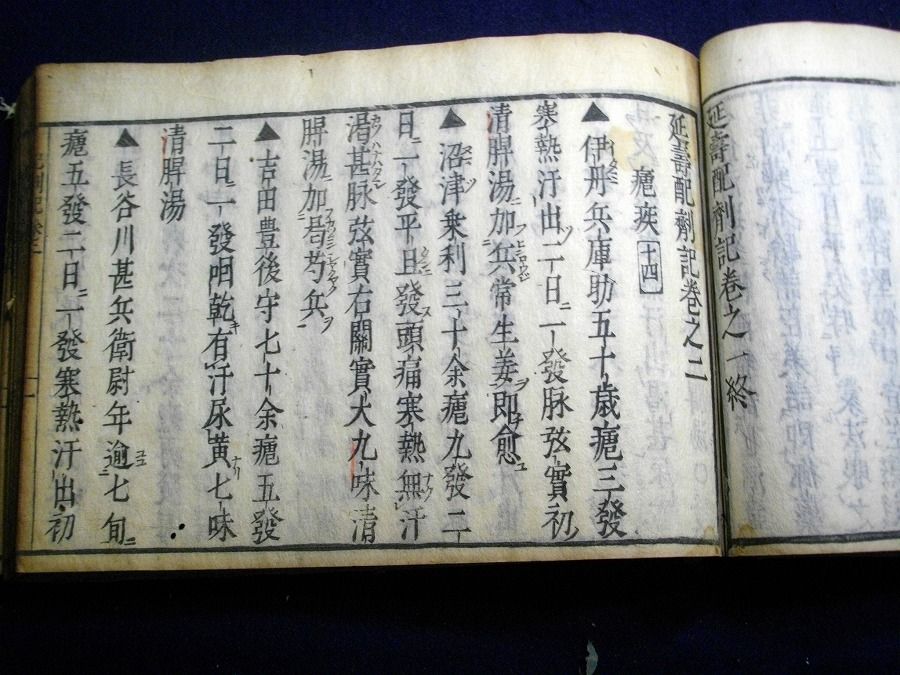 延壽配劑記卷之一終
延壽配劑記卷之二
瘧疾 十四
▲伊丹兵庫助五十歳瘧三發
寒熱汗出二日ニ一發脉弦實初
清脾湯加兵常生姜即愈
▲沼津乗利三十余瘧九發二
日ニ一發平旦發頭痛寒熱無汗
渇甚脉弦實右關實大九味清
脾湯加朮芍兵
▲吉田豊後守七十余瘧五發
二日ニ一發咽乾有汗尿黄七味
清脾湯
▲長谷川甚兵衛尉年逾七旬
瘧五發二日ニ一發寒熱汗出初